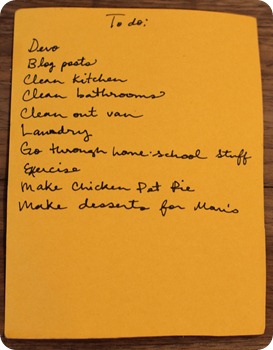 To do:
Devo
Blog posts
Clean kitchen
Clean bathrooms
Clean out van
Laundry
Go through home-school stuff
Exercise
Make Chicken Pot Pie
Make desserts for Mom's